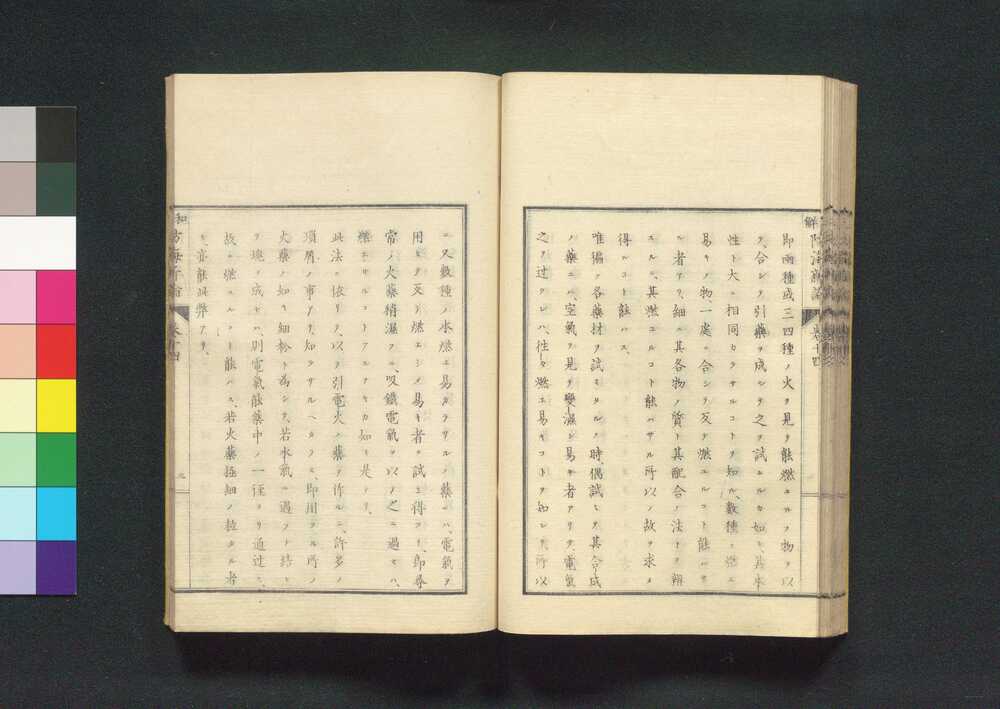 即兩種或三四種ノ火ヲ見テ能燃ユルノ物ヲ以
テ、合シテ引藥ヲ成シテ之ヲ試ユルカ如シ、其本
性ト大ニ相同カラサルコトヲ知ル、數種ノ燃エ
易キノ物、一處ニ合シテ反テ燃ユルコト能ハサ
ル者アリ、細ニ其各物ノ質ト其配合ノ法トヲ辨
スルニ、其燃ユルコト能ハサル所以ノ故ヲ求メ
得ルコト能ハス、
唯徧ク各藥材ヲ試ミタルノ時、偶試ミテ其合成
ノ藥ニ、空氣ヲ見テ變濕シ易キ者アリテ電氣
之ヲ过クレハ、往々燃エ易キコトヲ知レリ、所以
ニ又數種ノ水燃エ易カラサルノ藥ニハ、電氣ヲ
用ヒテ反テ燃エシメ易キ者ヲ試ミ得フト、即尋
常ノ火藥稍濕フニ、吸鐵電氣ヲ以テ之ニ過セハ、
燃エサルコトアルナキカ如キ是ナリ、
此法ニ依リテ、以テ引電火ノ藥ヲ作ルニ、許多ノ
瑣屑ノ事アリ、知ラサルヘカラス、即用フル所ノ
火藥ノ如キ細粉ト為シテ、若水氣ニ遇フト結ヒ
テ塊ヲ成セハ、則電氣能藥中ノ一徑ヨリ通過シ、
故ニ燃ユルコト能ハス、若火藥極細ノ粒タル者
モ、亦能此弊アリ、